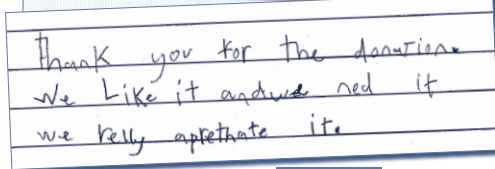 Thank you for the donation.
We Like it andwe ned it
we relly aprethate it.